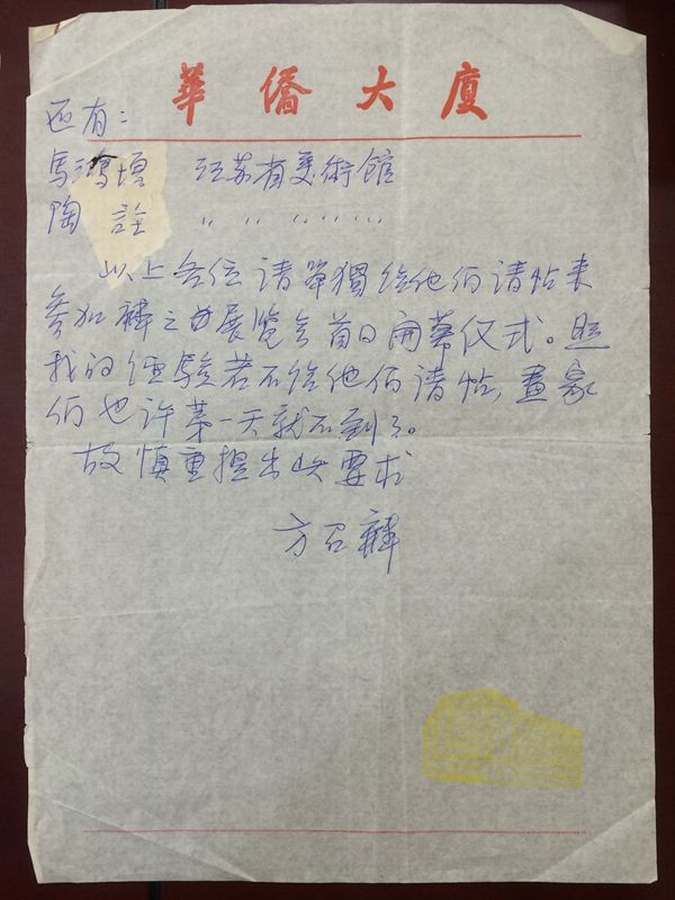 華僑大廈
还有：
馬鴻增 江苏省美術館
陶 詮 〃 〃 〃〃〃〃
以上各位请單獨给他们请帖来
参加麟之画展览会首日開幕仪式。照
我的经驗若不给他们请帖，畫家
们也许第一天就不到了。
故慎重提出此要求
方召麐